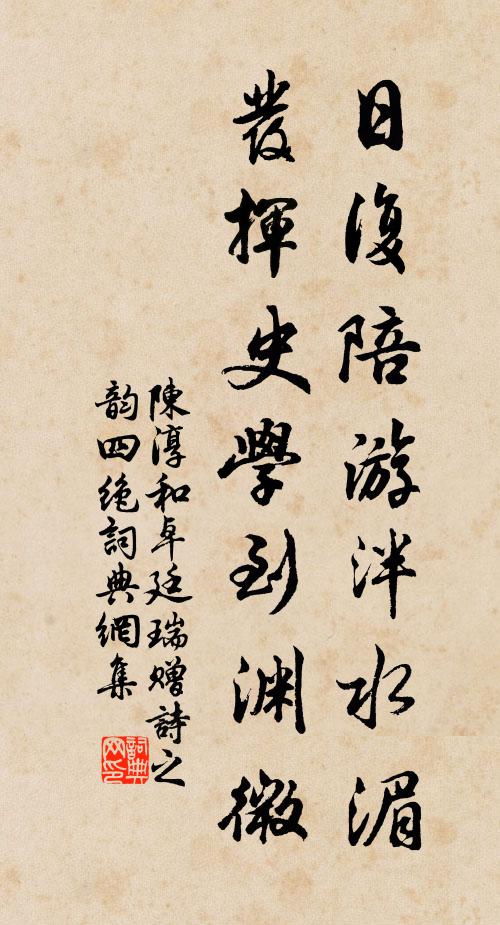 日復陪游泮水湄
發揮史學到淵微
陳淳和卓廷瑞贈詩之
韵四絶詞典網集
詞典
网印